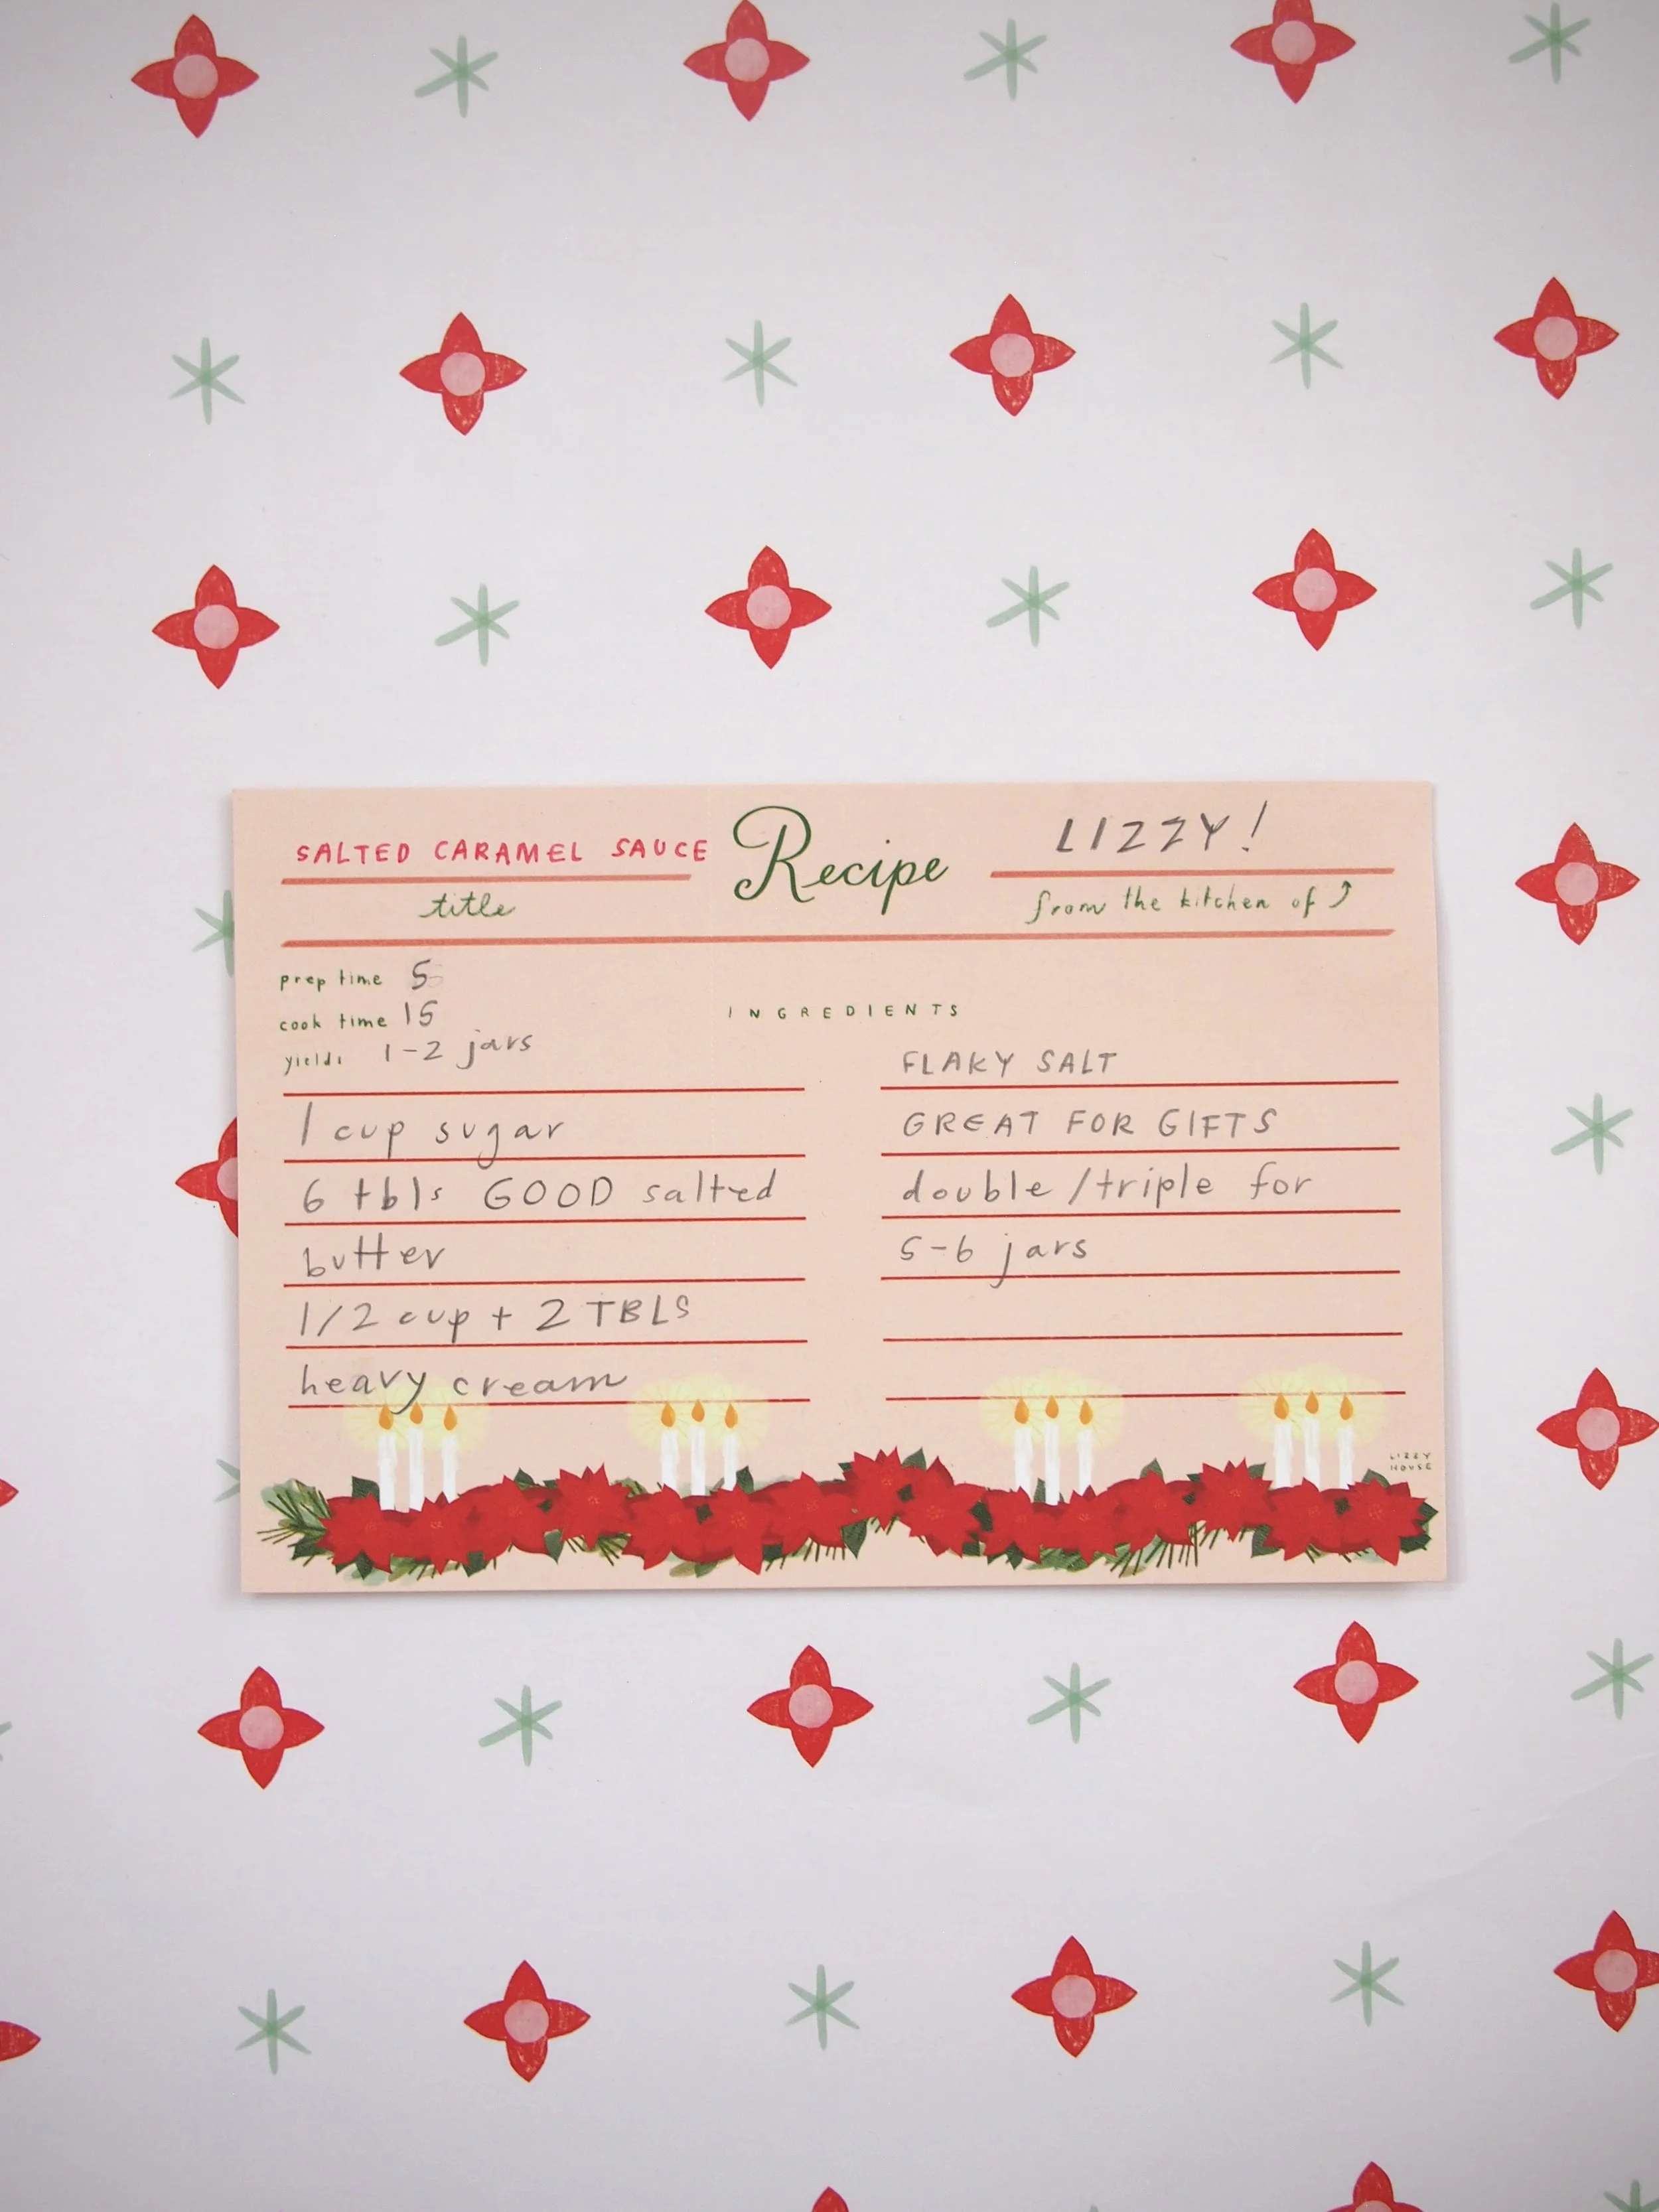 SALTED CARAMEL SAUCE
title
Recipe
LIZZY!
from the kitchen of
prep time 5
cook time 15
yields 1-2 jars
INGREDIENTS
1 cup sugar
6 tbls GOOD salted
butter
1/2 cup + 2 TBLS
heavy cream
FLAKY SALT
GREAT FOR GIFTS
double/triple for
5-6 jars
LIZZY
HOUSE